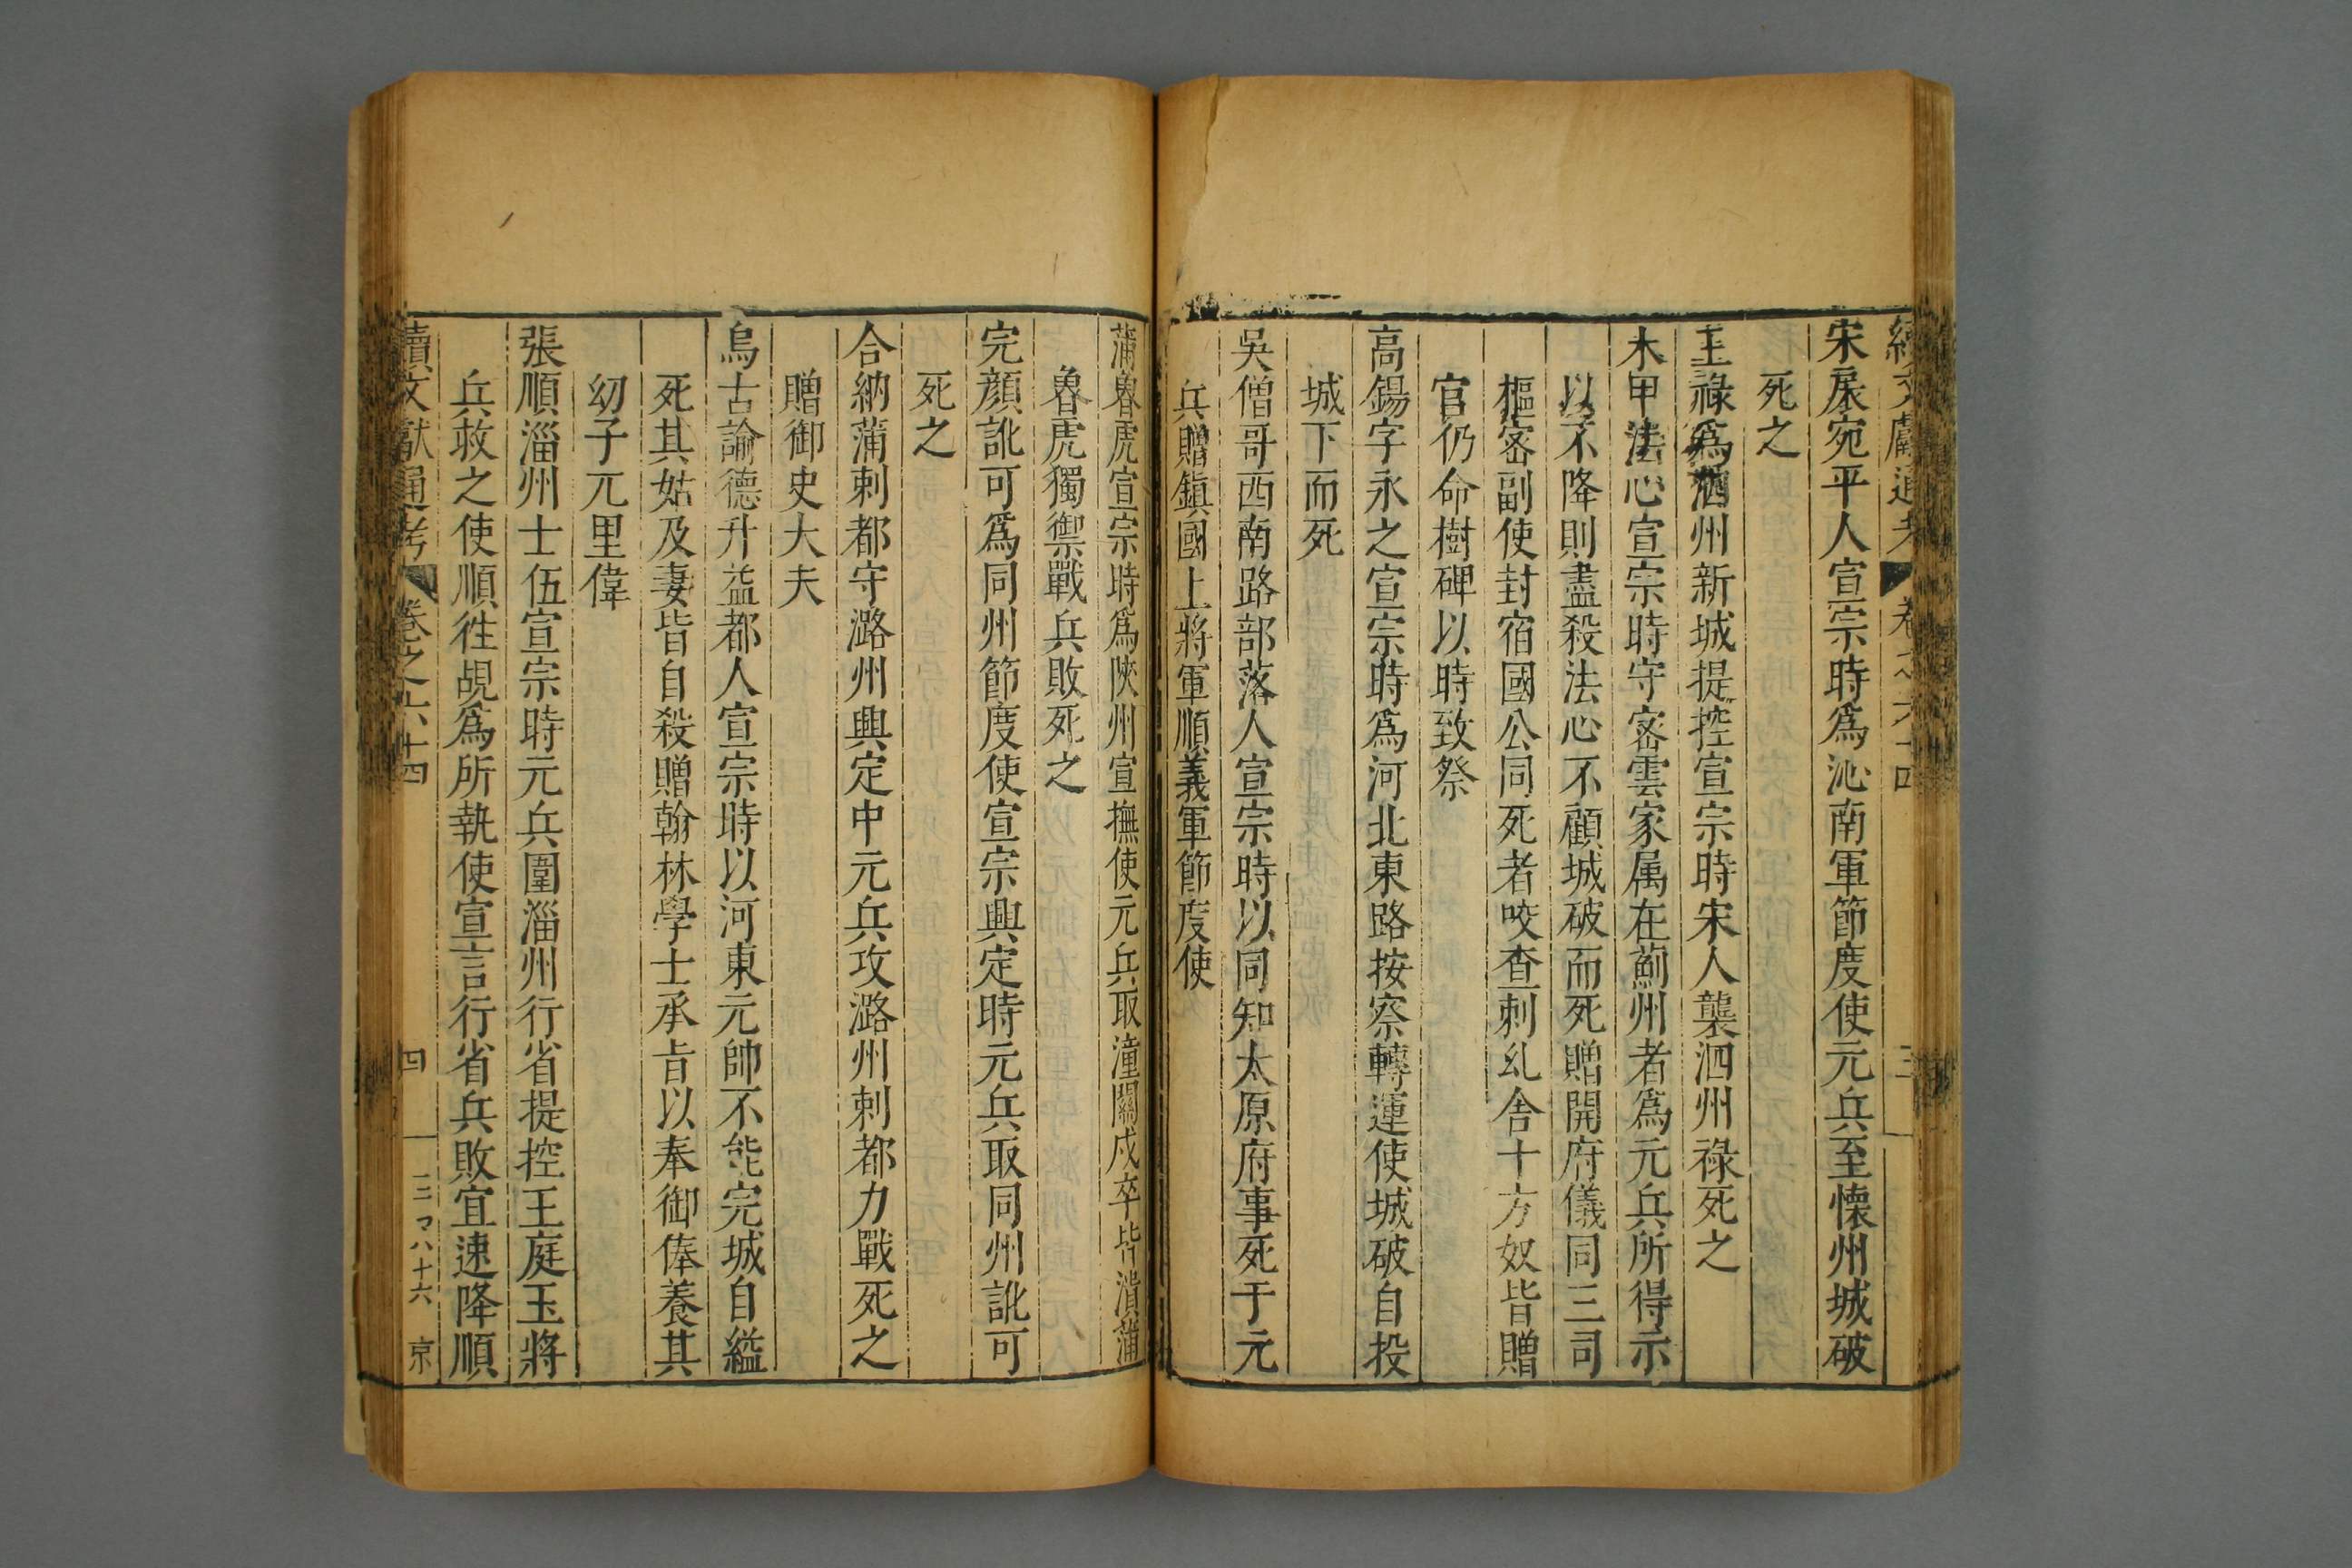 續文獻通考 卷之六十四 三
宋扆宛平人宣宗時爲沁南軍節度使元兵至懷州城破
死之
王祿爲泗州新城提控宣宗時宋人襲泗州祿死之
木甲法心宣宗時守密雲家属在薊州者爲元兵所得示
以不降則盡殺法心不顧城破而死贈開府儀同三司
樞密副使封宿國公同死者咬查剌乣舍十方奴皆贈
官仍命樹碑以時致祭
高錫字永之宣宗時爲河北東路按察轉運使城破自投
城下而死
吳僧哥西南路部落人宣宗時以同知太原府事死于元
兵贈鎮國上將軍順義軍節度使
蒲魯虎宣宗時爲陝州宣撫使元兵取潼關戍卒皆潰蒲
魯虎獨禦戰兵敗死之
完顔訛可爲同州節度使宣宗興定時元兵取同州訛可
死之
合納蒲剌都守潞州興定中元兵攻潞州剌都力戰死之
贈御史大夫
烏古論德升益都人宣宗時以河東元帥不能完城自縊
死其姑及妻皆自殺贈翰林學士承旨以奉御俸養其
幼子元里偉
張順淄州士伍宣宗時元兵圍淄州行省提控王庭玉將
兵救之使順徃覘爲所執使宣言行省兵敗宜速降順
續文獻通考 卷之六十四 四 八十六 京